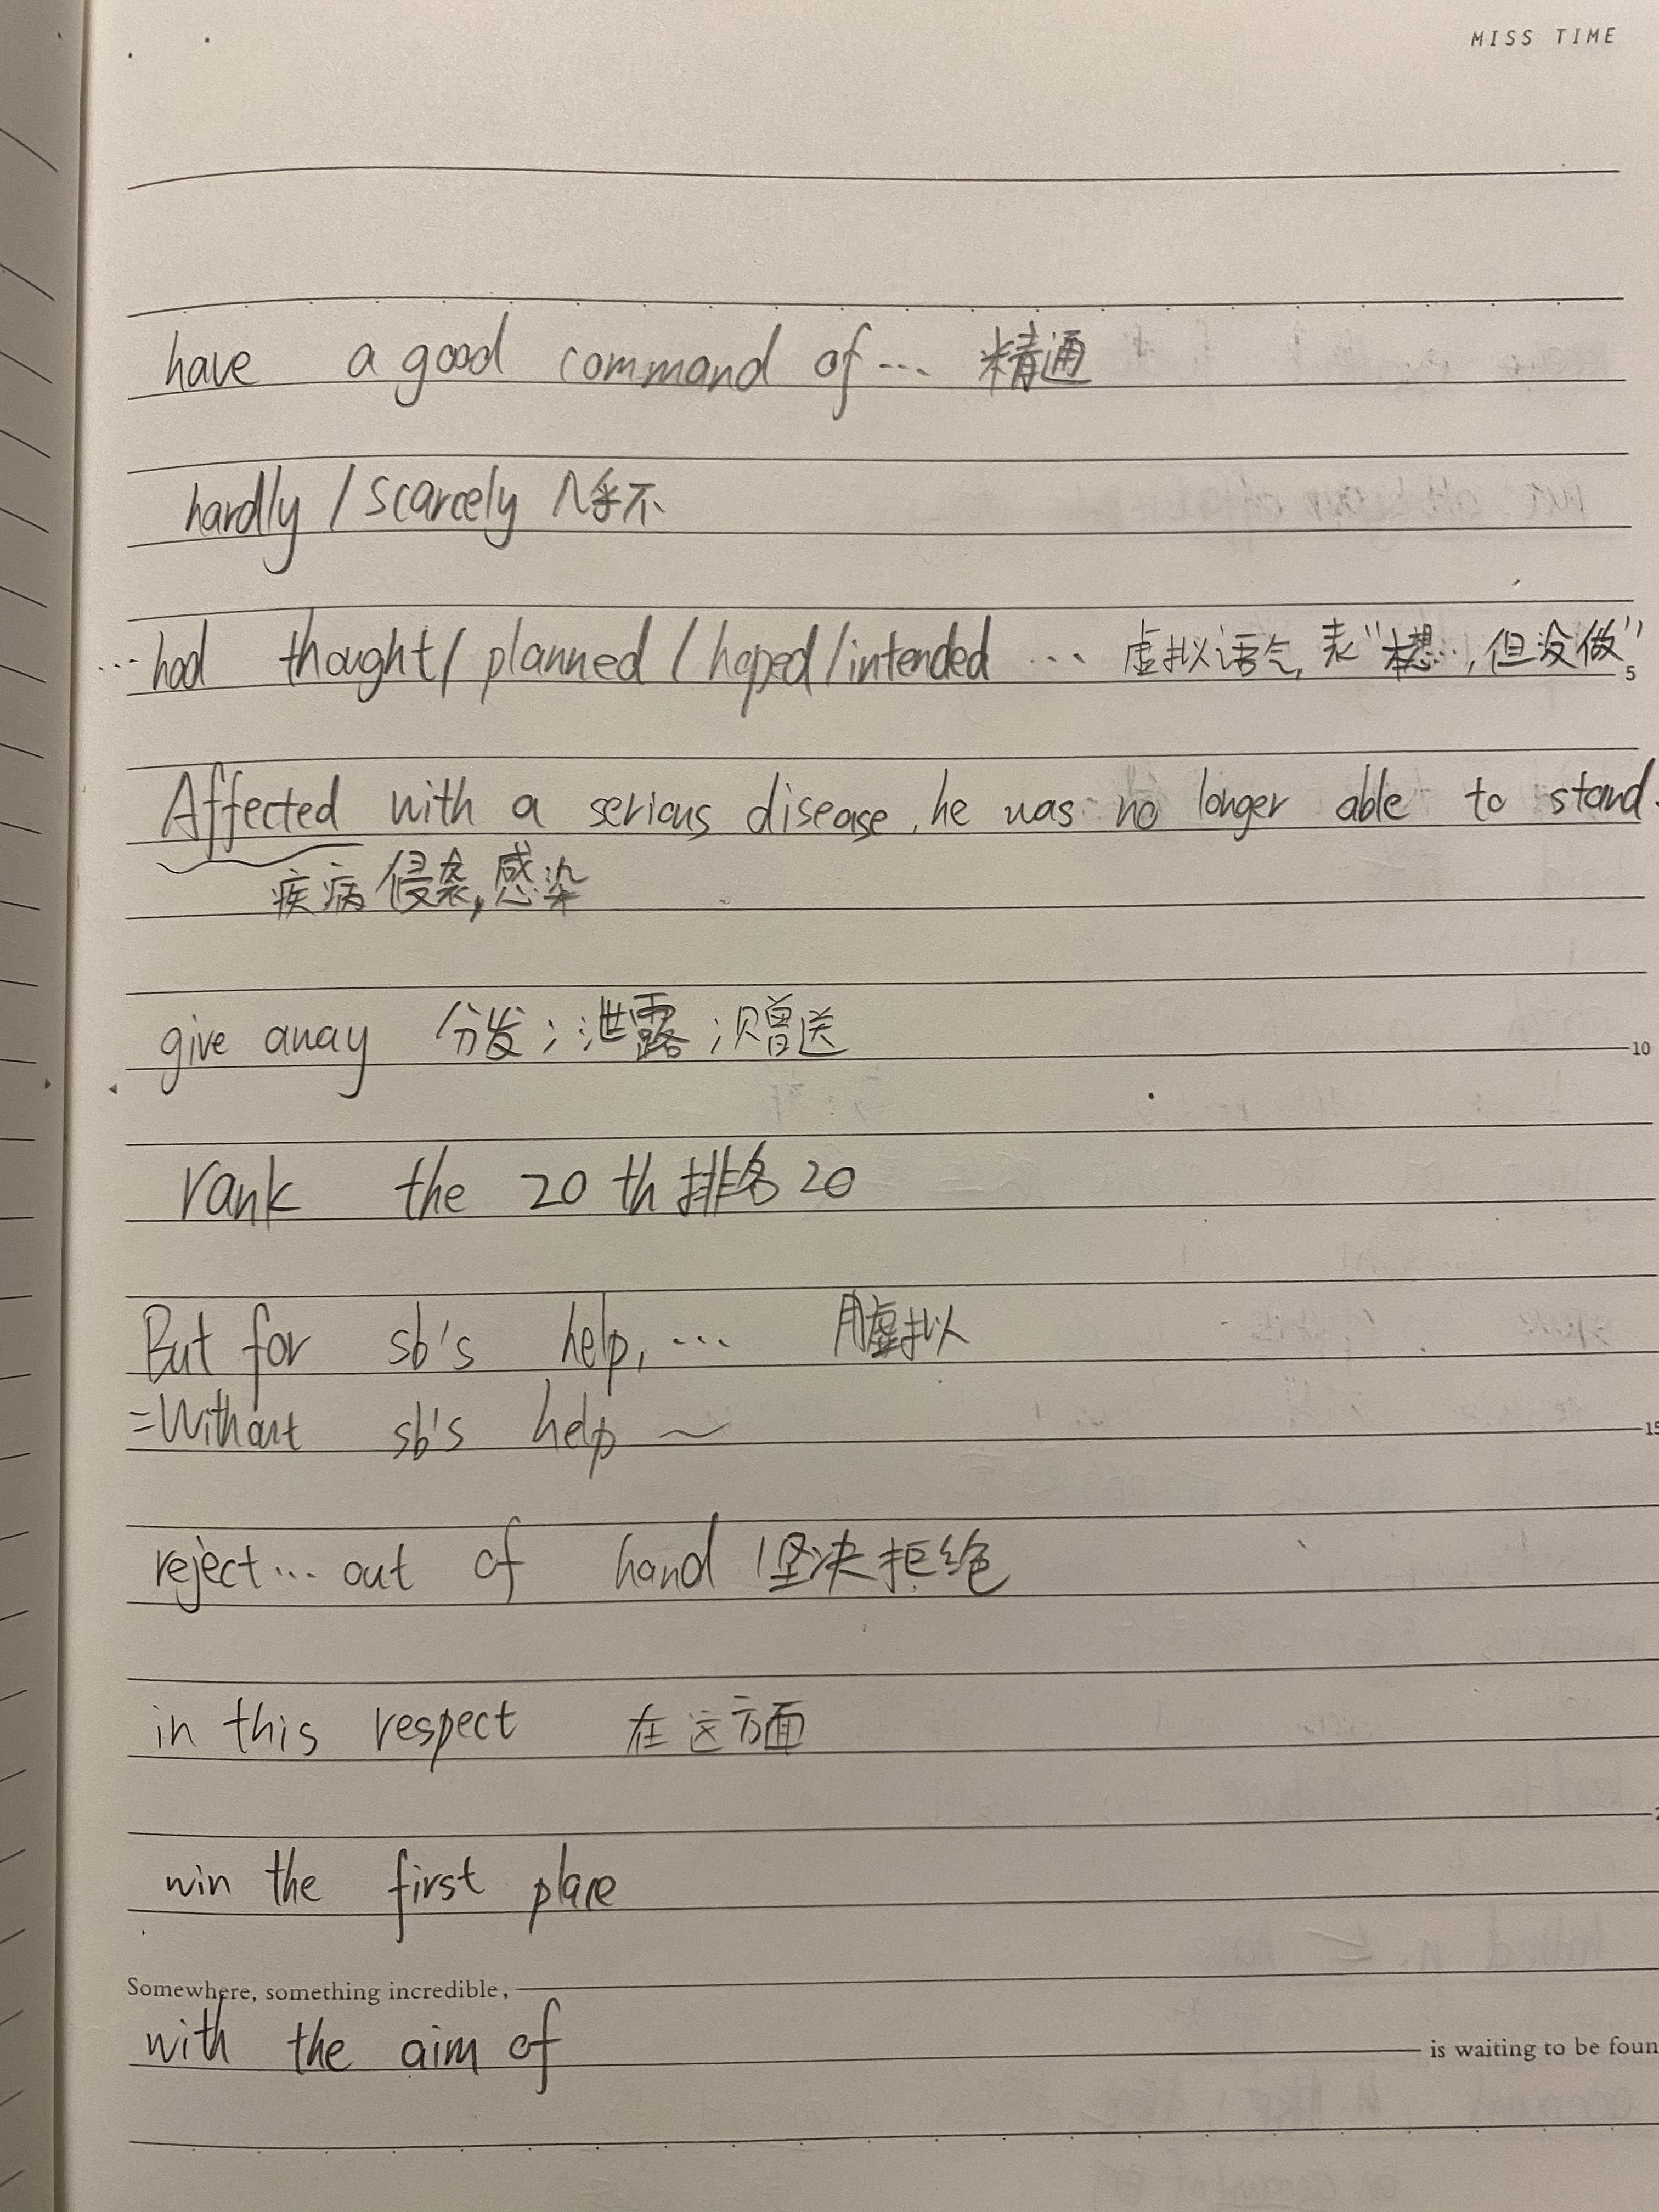 MISS TIME
have a good command of... 精通
hardly / scarcely 几乎不
... had thought / planned / hoped / intended ... 虚拟语气, 表"想..., 但没做"
5
Affected with a serious disease, he was no longer able to stand.
疾病侵袭, 感染
give away 分发; 泄露; 赠送
10
rank the 20th 排名20
But for sb's help, ... 虚拟
=Without sb's help ~
15
reject ... out of hand 坚决拒绝
in this respect 在这方面
win the first place
Somewhere, something incredible,
is waiting to be foun
with the aim of